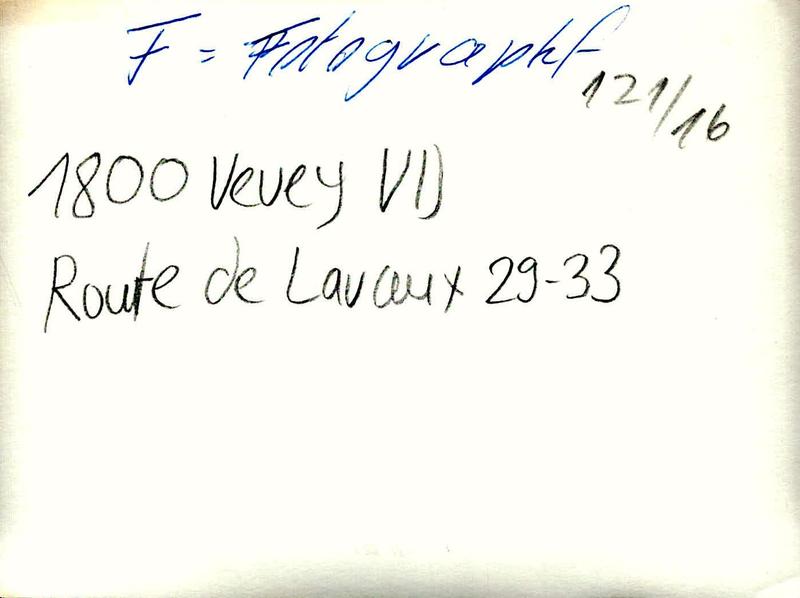 F = Fotographf
121/16
1800 Vevey VD
Route de Lavaux 29-33